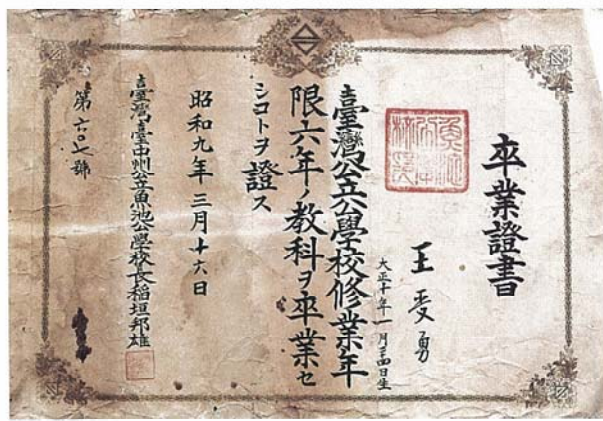 卒業證書
王受勇
大正十年一月廿四日生
臺灣公立公學校修業年
限六年ノ教科ヲ卒業セ
シコトヲ證ス
昭和九年三月十六日
臺灣臺中州公立魚池公學校長稲垣邦雄
第六〇七號